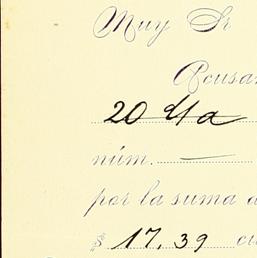 Muy Sr
Acusa
20
núm.
por la suma d
$ 17,39 cu